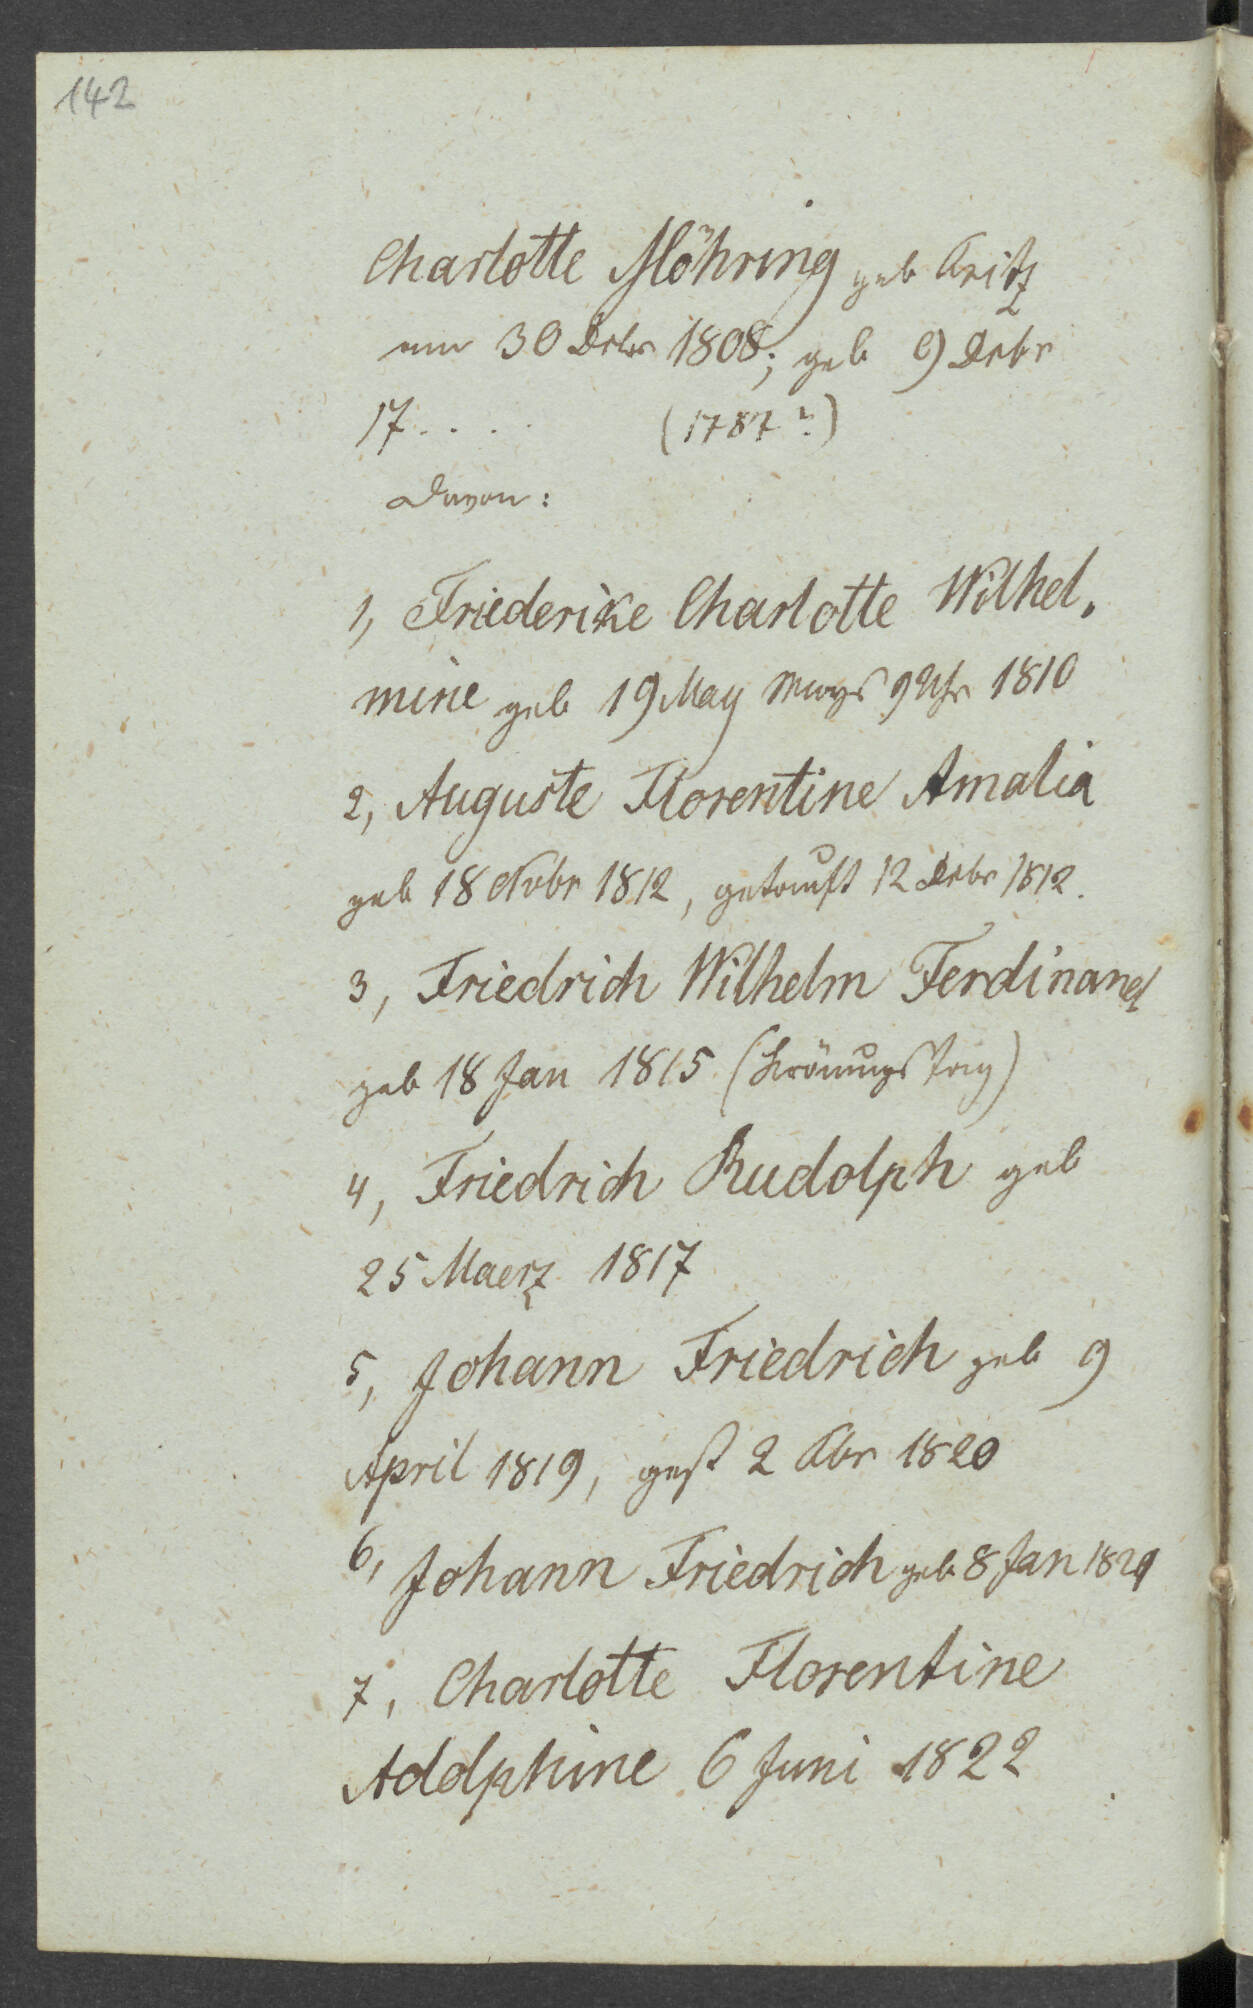 142
Charlotte Möhring geb Kritz
am 30 Debr 1808; geb 9 Debr
17.... (1787?)
Davon:
1, Friederike Charlotte Wilhel„
mine geb 19 May Mrgs 9 Uhr 1810
2, Auguste Florentine Amalia
geb 18 Novbr 1812, getauft 12 Debr 1812.
3, Friedrich Wilhelm Ferdinand
geb 18 Jan 1815 (Krönungs Tag)
4, Friedrich Rudolph geb
25 Maerz 1817
5, Johann Friedrich geb 9
April 1819, gest 2 1820
6, Johann Friedrich geb 8 Jan
7, Charlotte Florentine
Adolphine 6 Juni 1822